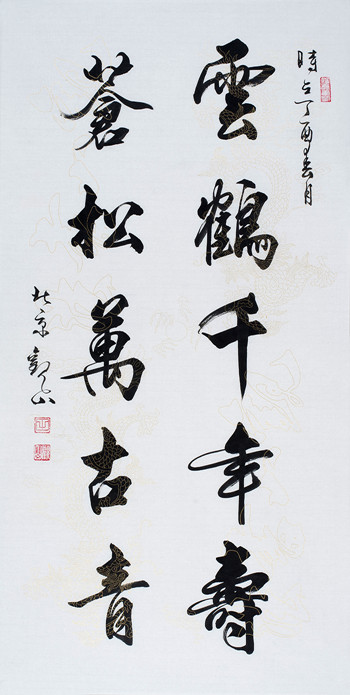 時占丁酉春月
雲鶴千年壽
蒼松萬古青
北京山